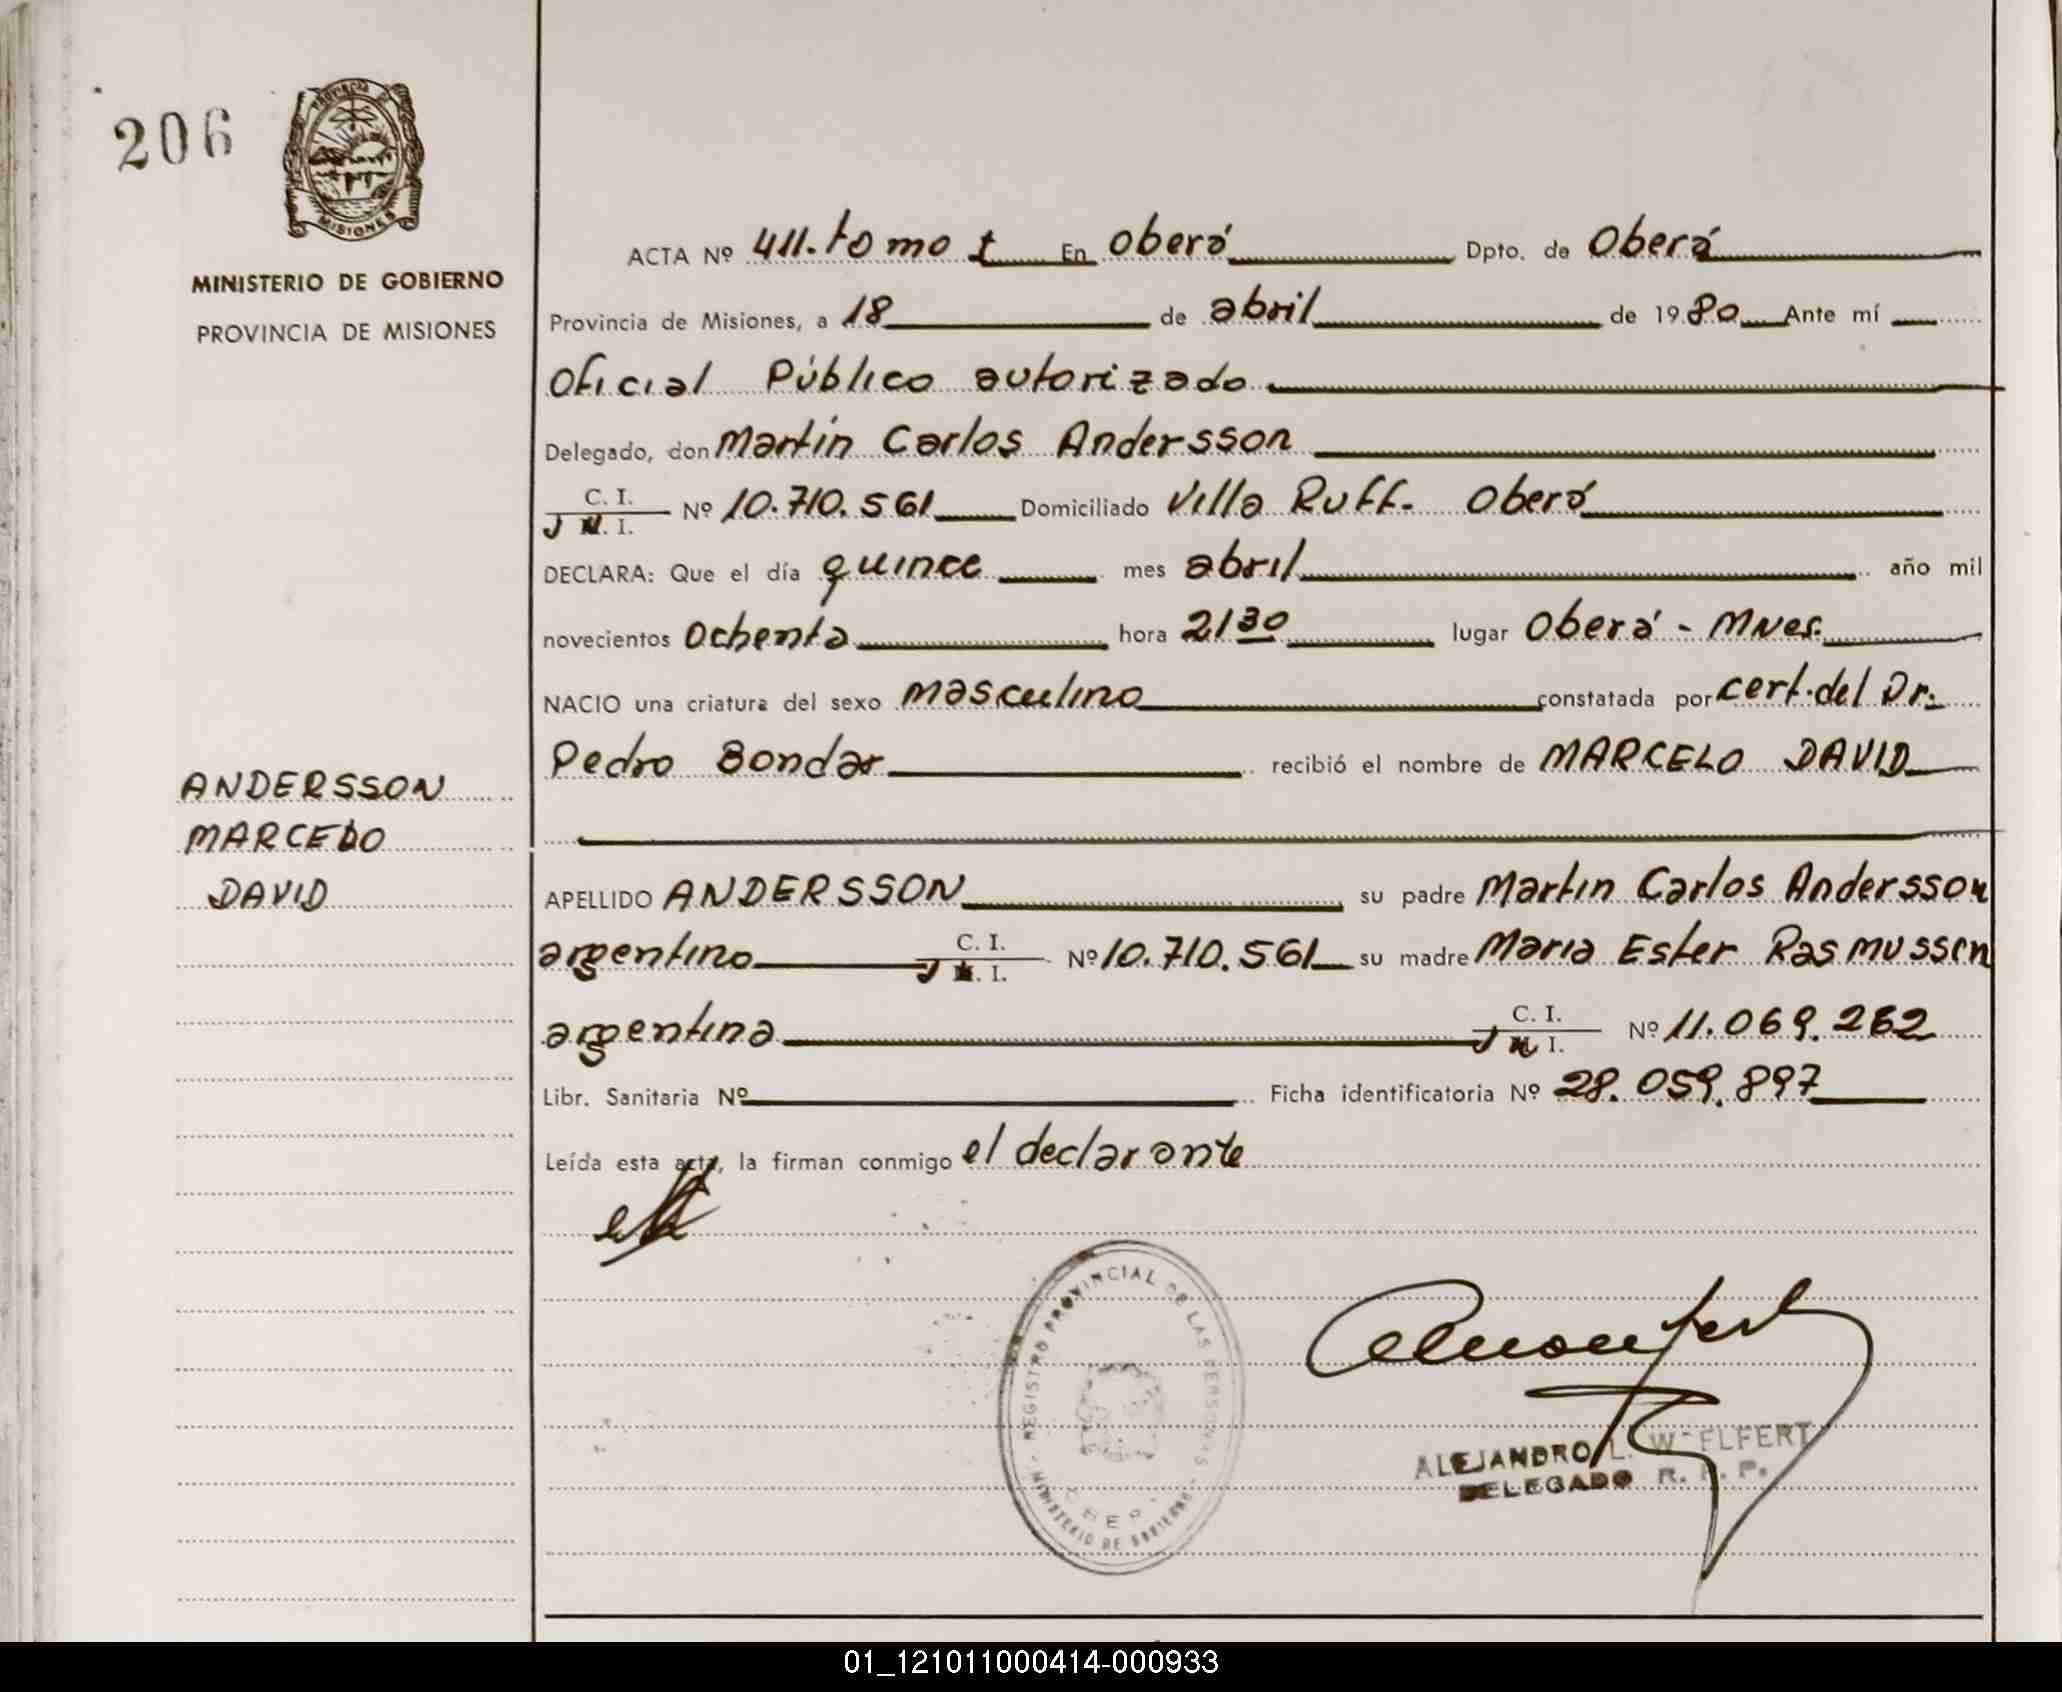 206
PROVINCIA DE
MISIONES
MINISTERIO DE GOBIERNO
PROVINCIA DE MISIONES
ACTA Nº 411. tomo I En Oberá Dpto. de Oberá
Provincia de Misiones, a 18 de abril de 1980 Ante mí
Oficial Público autorizado
Delegado, don Martín Carlos Andersson
C. I.
M. I. Nº 10.710.561 Domiciliado Villa Ruff. Oberá
DECLARA: Que el día quince mes abril año mil
novecientos ochenta hora 2130 lugar Oberá - Mnes.
NACIO una criatura del sexo masculino constatada por cert. del Dr.
Pedro Bondar recibió el nombre de MARCELO DAVID
ANDERSSON
MARCELO
DAVID
APELLIDO ANDERSSON su padre Martin Carlos Andersson
argentino C. I.
M. I. Nº 10.710.561 su madre Maria Ester Rasmussen
argentina C. I.
M. I. Nº 11.069.262
Libr. Sanitaria Nº Ficha identificatoria Nº 28.059.897
Leída esta acta, la firman conmigo el declarante
REGISTRO PROVINCIAL DE LAS PERSONAS
MINISTERIO DE GOBIERNO
ALEJANDRO L. WELFERT
DELEGADO R. P. P.
01_121011000414-000933